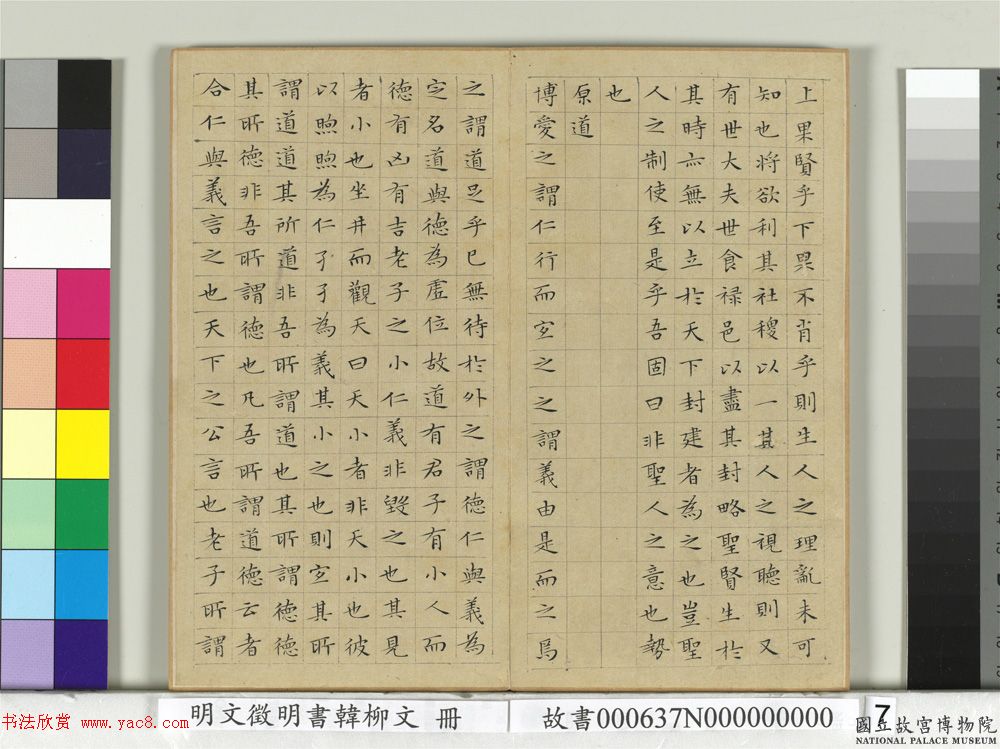 上果賢乎下果不肖乎則生人之理亂未可
知也將欲利其社稷以一其人之視聽則又
有世大夫世食祿邑以盡其封略聖賢生於
其時亦無以立於天下封建者為之也豈聖
人之制使至是乎吾固曰非聖人之意也勢
也
原道
博愛之謂仁行而宜之之謂義由是而之焉
之謂道足乎已無待於外之謂德仁與義為
定名道與德為虛位故道有君子有小人而
德有凶有吉老子之小仁義非毀之也其見
者小也坐井而觀天曰天小者非天小也彼
以煦煦為仁孑孑為義其小之也則宜其所
謂道道其所道非吾所謂道也其所謂德德
其所德非吾所謂德也凡吾所謂道德云者
合仁與義言之也天下之公言也老子所謂
明文徵明書韓柳文 冊
故書000637N000000000
7
书法欣赏 www.yac8.com
國立故宮博物院
NATIONAL PALACE MUSEUM